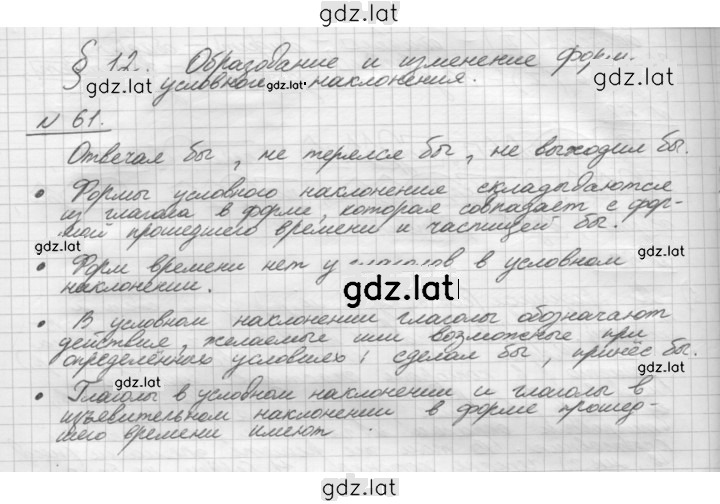 gdz.lat
§ 12. Образование и изменение форм
gdz.lat gdz.lat
условного наклонения.
gdz.lat
№ 61.
gdz.lat
Отвечал бы, не терялся бы, не выходил бы.
• Формы условного наклонения складываются
из глагола в форме, которая совпадает с фор-
мой прошедшего времени и частицей бы.
gdz.lat gdz.lat
• Форм времени нет у глаголов в условном
наклонении.
gdz.lat
• В условном наклонении глаголы обозначают
действия, желаемые или возможные при
определённых условиях: сделал бы, принёс бы.
gdz.lat gdz.lat
• Глаголы в условном наклонении и глаголы в
изъявительном наклонении в форме прошед-
шего времени имеют
gdz.lat